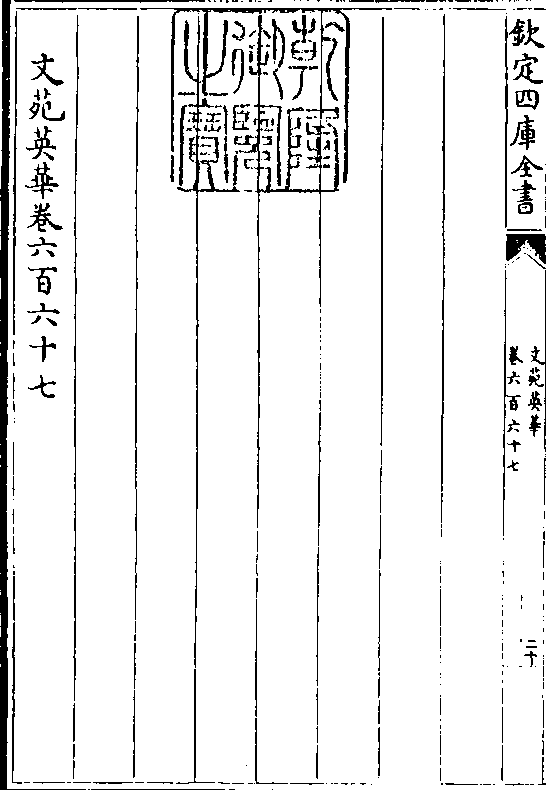 欽定四庫全書
文苑英華
卷六百六十七
二十
乾隆御覽之寶
文苑英華卷六百六十七